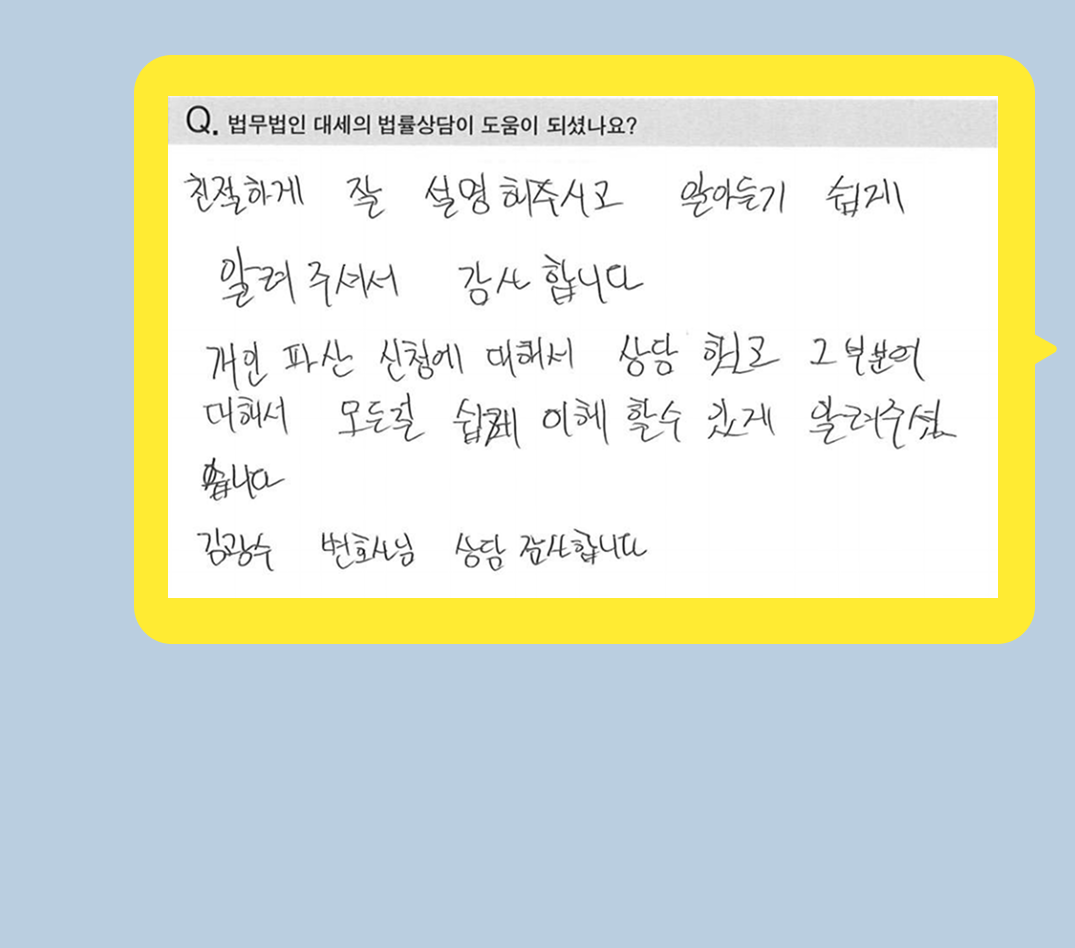 Q. 법무법인 대세의 법률상담이 도움이 되셨나요?
친절하게 잘 설명해주시고 알아듣기 쉽게
알려주셔서 감사합니다
개인 파산 신청에 대해서 상담 했고 그 부분에
대해서 모든걸 쉽게 이해 할수 있게 알려주셨
습니다
김광수 변호사님 상담 감사합니다